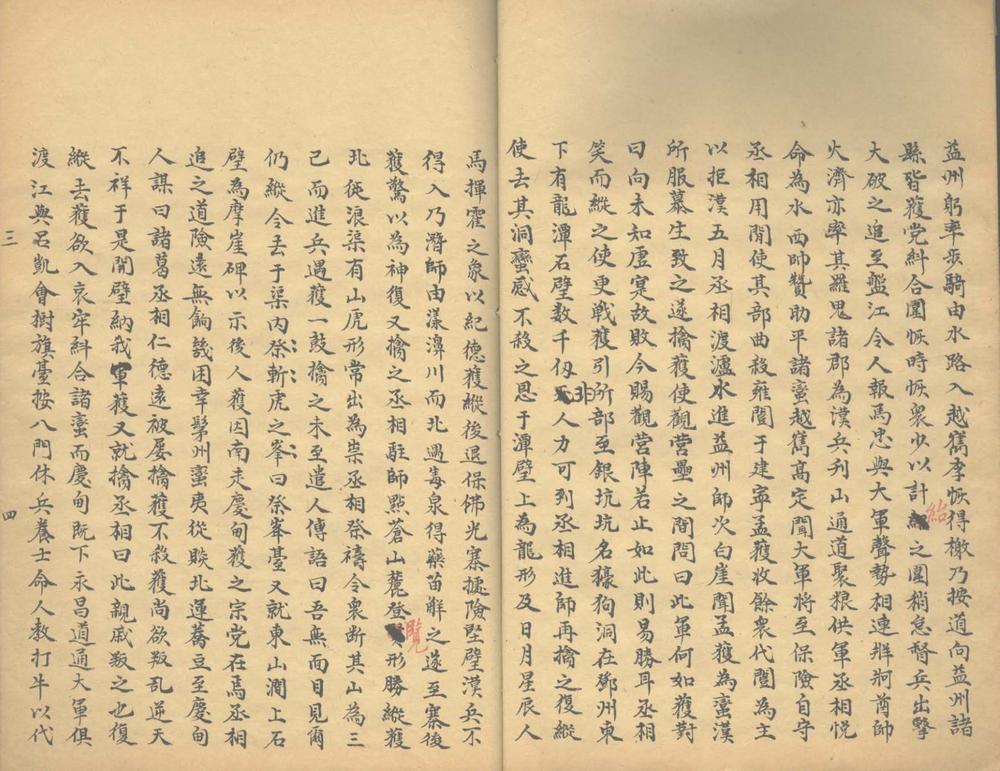 益州躬率步騎由水路入越嶲李恢得檄乃按道向益州諸
縣皆獲党糾合圍恢時恢衆少以計紿之圍稍怠督兵出擊
大破之追至盤江令人報馬忠與大軍聲勢相連牂牁酋帥
火濟亦率其羅鬼諸郡為漢兵刋山通道聚粮供軍丞相悅
命為水西帥贊助平諸蛮越嶲高定聞大軍将至保險自守
丞相用間使其部曲殺雍闓于建寧孟獲收餘衆代闓為主
以拒漢五月丞相渡瀘水進益州師次白崖聞孟獲為蛮漢
所服募生致之遂擒獲使觀营壘之間問曰此軍何如獲對
曰向未知虛寔故敗今賜觀营陣若止如此則易勝耳丞相
笑而縱之使更戰獲引所部至銀坑坑名獠狗洞在鄧州東
下有龍潭石壁数千仭非人力可到丞相進師再擒之復縱
使去其洞蛮感不殺之恩于潭壁上為龍形及日月星辰人
馬揮霍之象以紀德獲縱後退保佛光寨據險堅壁漢兵不
得入乃潛師由漾濞川而北遇毒泉得藥苗解之遂至寨後
獲驚以為神復又擒之丞相駐師點蒼山麓登覽形勝縱獲
北從浪渠有山虎形常出為祟丞相祭禱令衆断其山為三
已而進兵遇獲一鼓擒之未至遣人傳語曰吾無面目見爾
仍縱令去于渠内祭斬虎之峯曰祭峯臺又就東山澗上石
壁為摩崖碑以示後人獲因南走慶甸獲之宗党在焉丞相
追之道險遠無餉哉困幸髳州蛮夷從賧北運蕎豆至慶甸
人謀曰諸葛丞相仁德遠被屡擒獲不殺獲尚欲叛乱逆天
不祥于是開壁納我軍獲又就擒丞相曰此親戚叛之也復
縱去獲欲入哀牢糾合諸蛮而慶甸既下永昌道通大軍俱
渡江與呂凱會樹旗臺按八門休兵養士命人教打牛以代
三
四